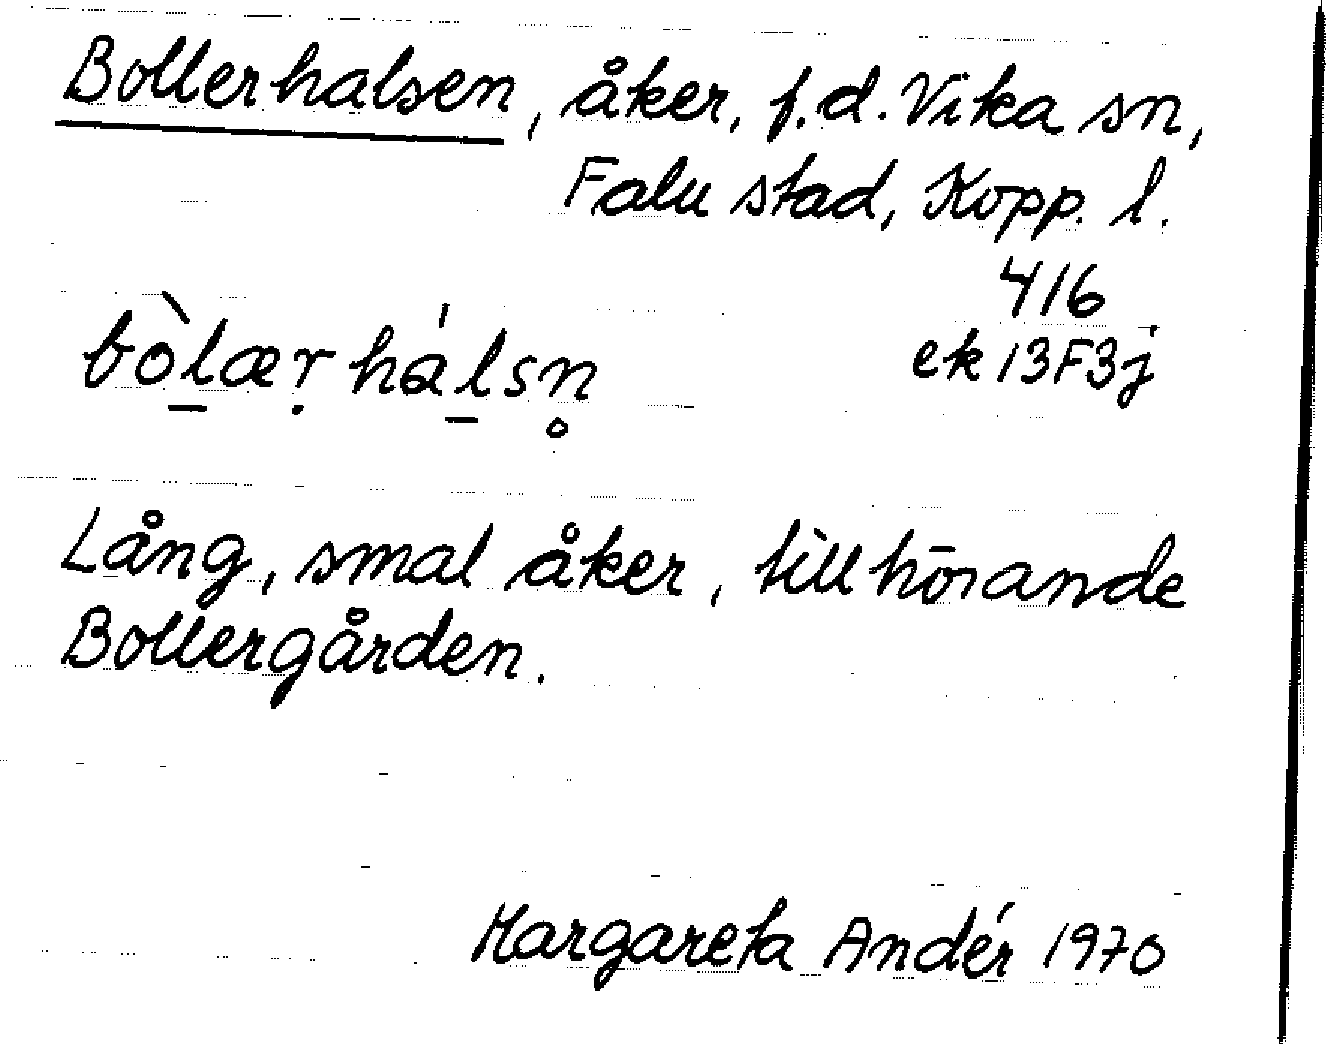 Bollerhalsen, åker, f.d. Vika sn,
Falu stad, Kopp. l.
416
ek 13F3j
bòl̠æṛhál̠sn̥
Lång, smal åker, tillhörande
Bollergården.
Margareta Andér 1970